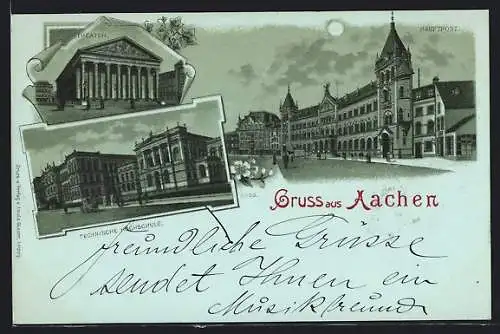 THEATER.
HAUPTPOST.
TECHNISCHE HOCHSCHULE.
Gruss aus Aachen
freundliche Grüsse
sendet Ihnen ein
Musikfreund